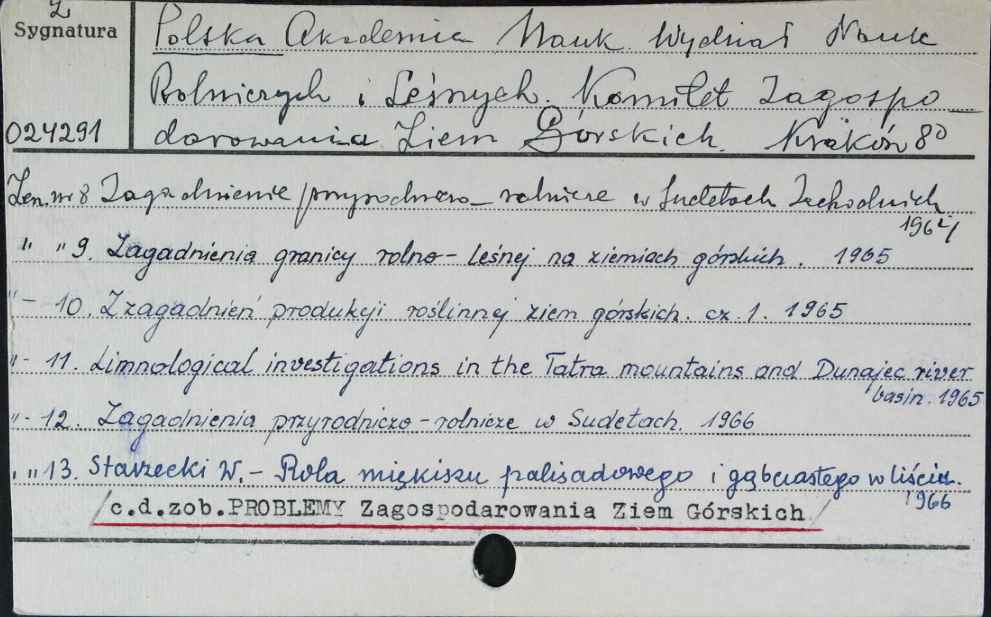 Z
Sygnatura
Polska Akademia Nauk Wydział Nauk
Rolniczych i Leśnych. Komitet Zagospo-
024291
darowania Ziem Górskich. Kraków 8⁰
Zen. nr 8 Zagadnienie przyrodniczo-rolnicze w Sudetach Zachodnich
1964
" " 9. Zagadnienia granicy rolno-leśnej na ziemiach górskich. 1965
"- 10. Z zagadnień produkcji roślinnej ziem górskich. cz. 1. 1965
"- 11. Limnological investigations in the Tatra mountains and Dunajec river
basin. 1965
"- 12. Zagadnienia przyrodniczo-rolnicze w Sudetach. 1966
" " 13. Starzecki W. - Rola miękiszu palisadowego i gąbczastego w liściu.
1966
/c.d.zob.PROBLEMY Zagospodarowania Ziem Górskich/